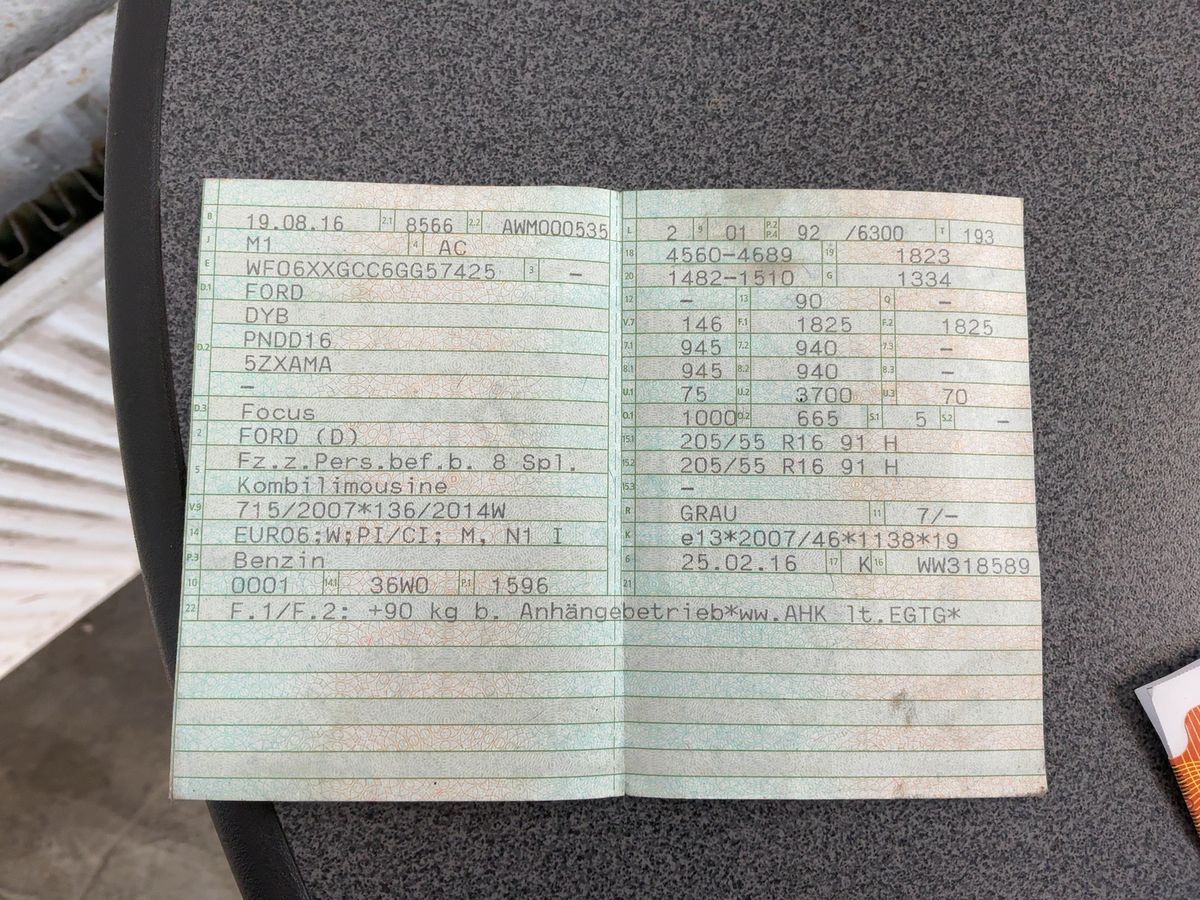 B 19.08.16 2.1 8566 2.2 AWM000535
J M1 4 AC
E WF06XXGCC6GG57425 3 –
D.1 FORD
DYB
D.2 PNDD16
5ZXAMA
–
D.3 Focus
2 FORD (D)
5 Fz.z.Pers.bef.b. 8 Spl.
Kombilimousine
V.9 715/2007*136/2014W
14 EURO6;W;PI/CI; M, N1 I
P.3 Benzin
10 0001 14.1 36W0 P.1 1596
L 2 9 01 P.2 P.4 92 /6300 T 193
18 4560-4689 19 1823
20 1482-1510 G 1334
12 – 13 90 Q –
V.7 146 F.1 1825 F.2 1825
7.1 945 7.2 940 7.3 –
8.1 945 8.2 940 8.3 –
U.1 75 U.2 3700 U.3 70
O.1 1000 O.2 665 S.1 5 S.2 –
15.1 205/55 R16 91 H
15.2 205/55 R16 91 H
15.3 –
R GRAU 11 7/–
K e13*2007/46*1138*19
6 25.02.16 17 K 16 WW318589
21
22 F.1/F.2: +90 kg b. Anhängebetrieb*ww.AHK lt.EGTG*